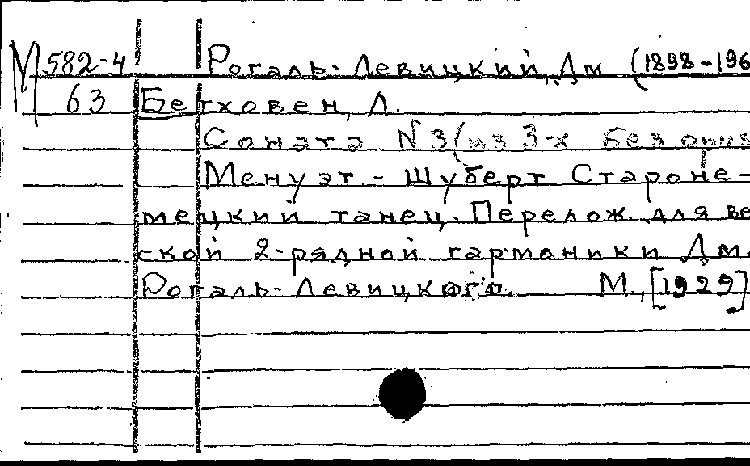 М 582-4 Рогаль-Левицкий, Дм (1898-196
63 Бетховен, Л.
Соната N 3 (из 3-х Без опуса
Менуэт - Шуберт Староне-
мецкий танец. Перелож. для ве
ской 2-рядной гармоники Дм.
Рогаль-Левицкого. М., [1929]